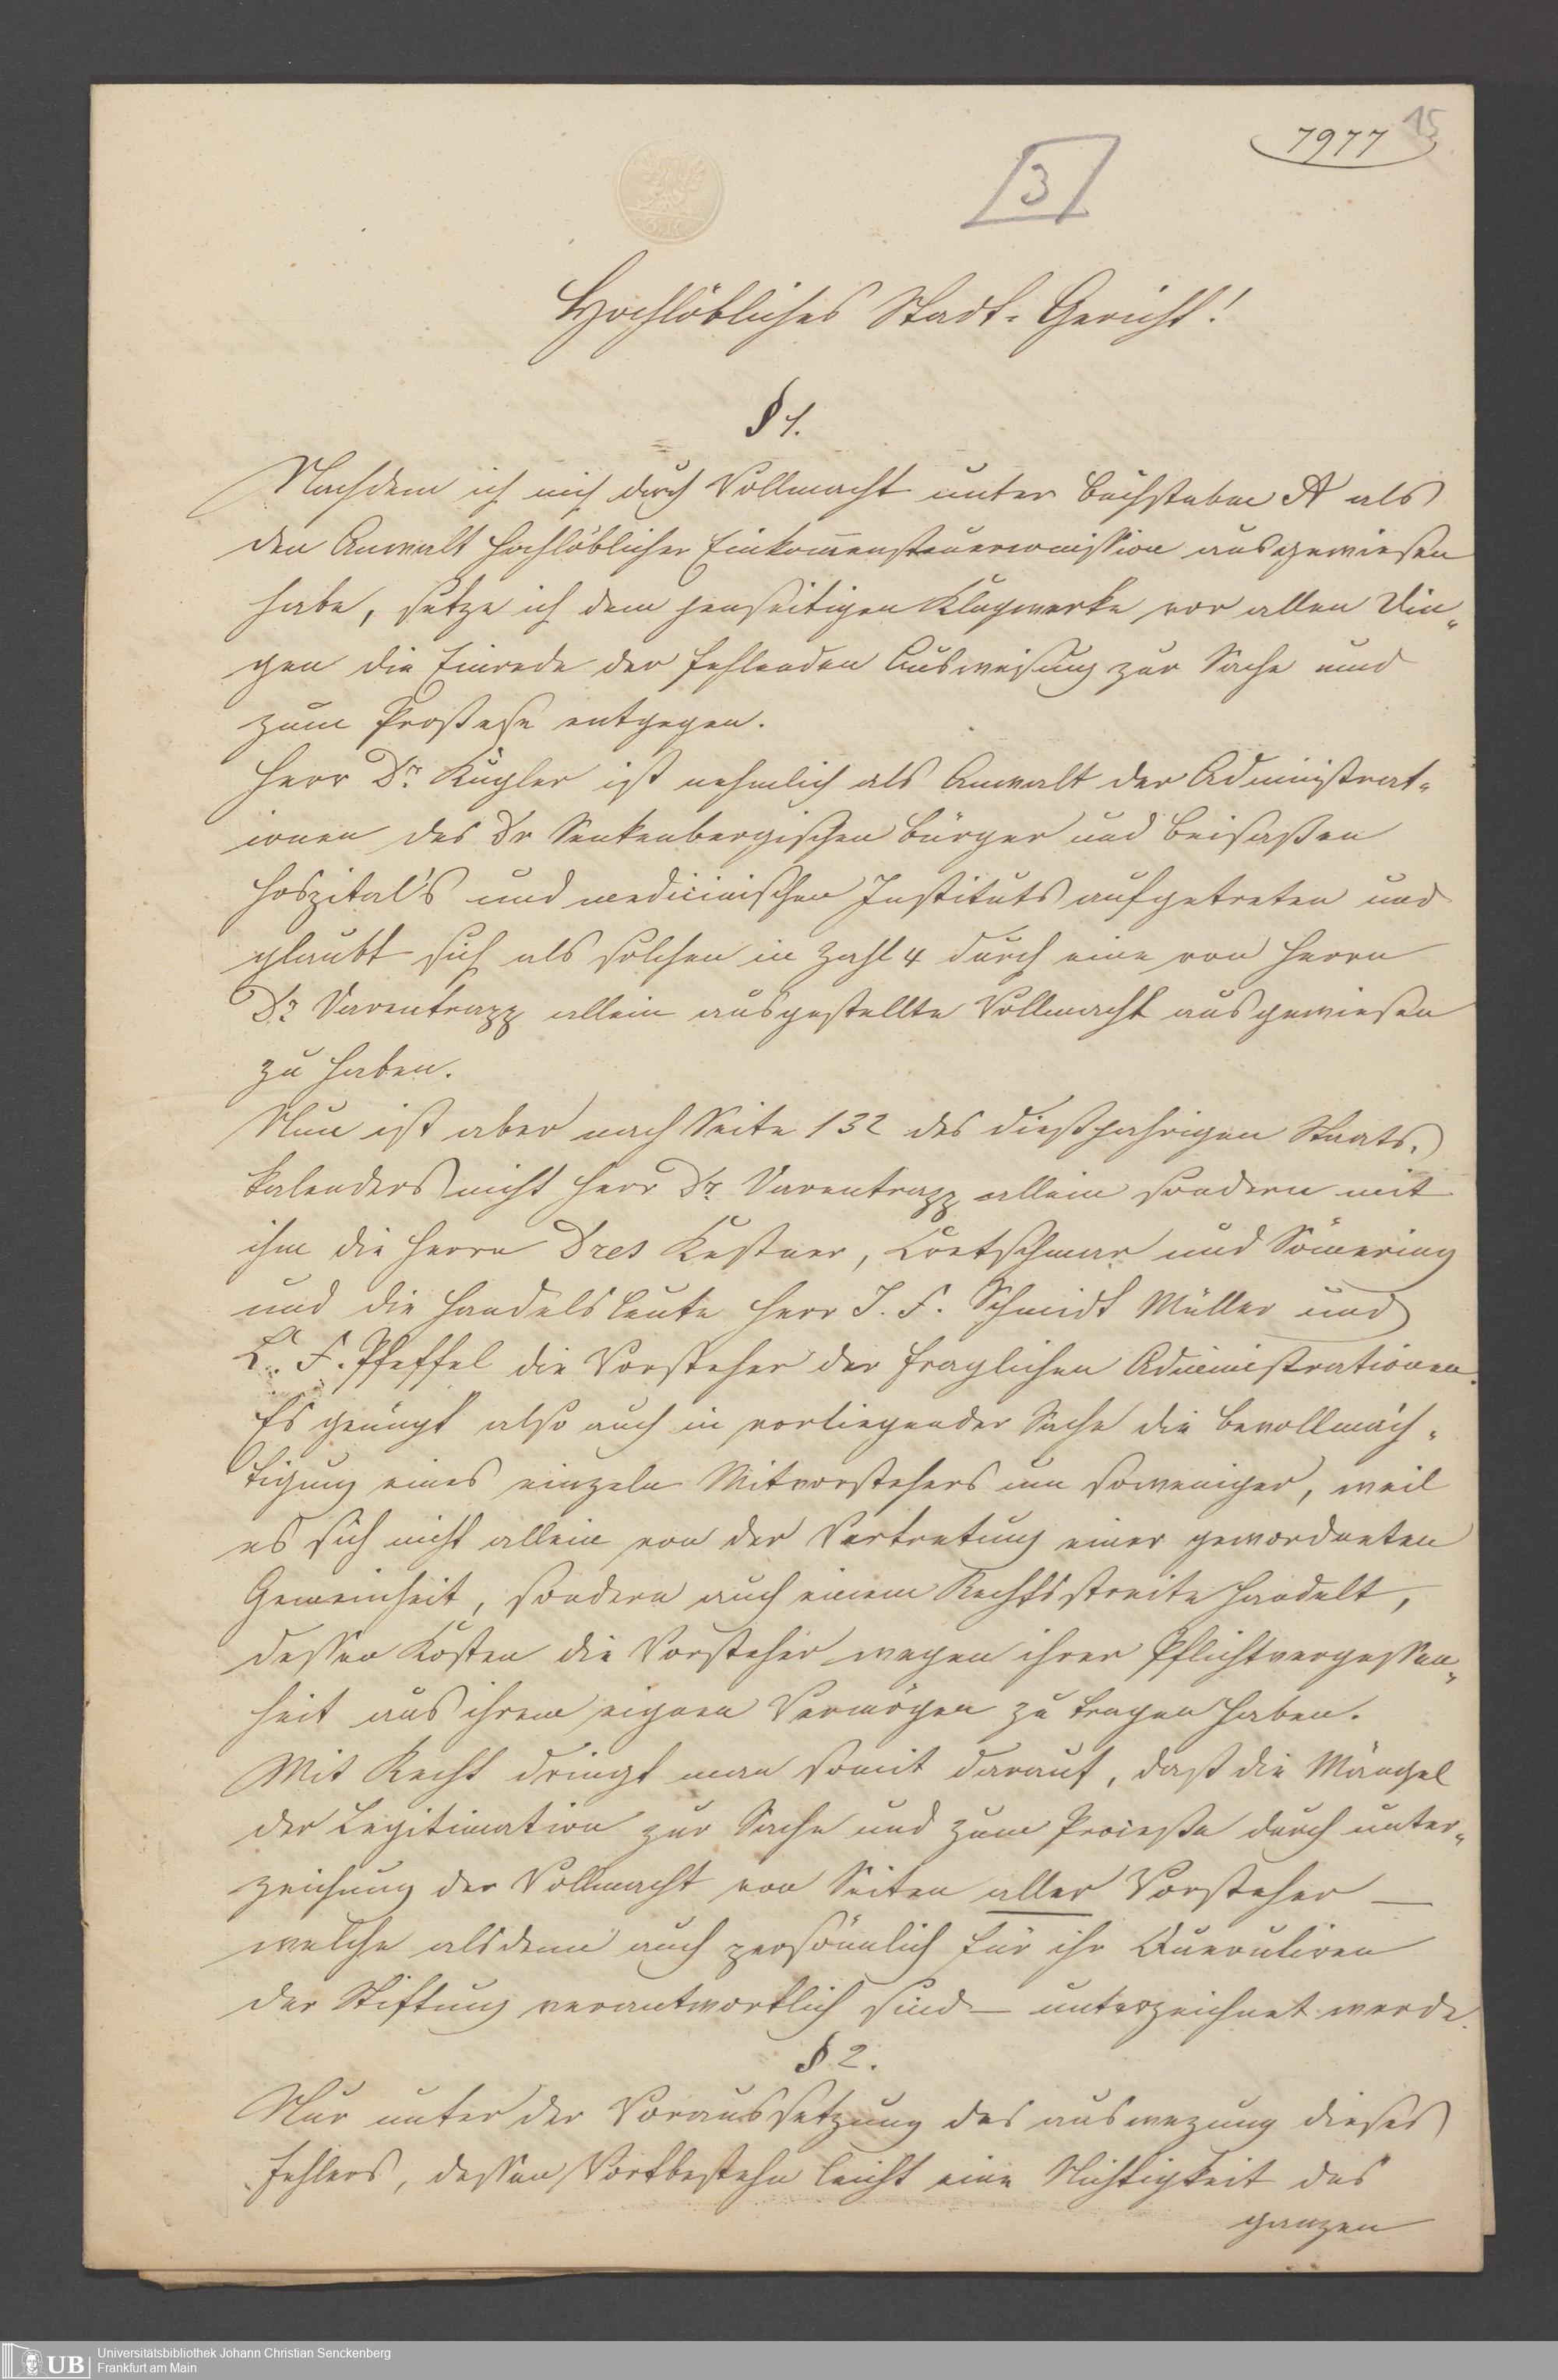 7977 15
3
Hochlöbliches Stadt-Gericht!
§ 1.
Nachdem ich mich durch Vollmacht unter Buchstaben A als
den Anwalt hochlöblicher Einkom̅ensteuercomission ausgewiesen
habe, setze ich dem jenseitigen Klagwerke vor allen Din„
gen die Einrede der fehlenden Ausweisung zur Sache und
zum Prozesse entgegen.
Herr Dr. Kugler ist nehmlich als Anwalt der Administrat„
ionen des Dr Senkenbergischen Bürger und Beisaßen
Hospital's und medicinischen Instituts aufgetreten und
glaubt sich als solchen in Zahl 4 durch eine von Herrn
Dr. Varentrapp allein ausgestellte Vollmacht ausgewiesen
zu haben.
Nun ist aber nach Seite 132 des dießjahrigen Staats-
kalenders nicht Herr Dr. Varentrapp allein sondern mit
ihm die Herrn Dres Kestner, Cretschmar und Söm̅ering
und die Handelsleute Herr J. F. Schmidt Müller und
F. Pfeffel die Vorsteher der fraglichen Administrationen.
Es genügt also auch in vorliegender Sache die Bevollmäch-
tigung eines einzeln Mitvorstehers um soweniger, weil
es sich nicht allein von der Vertretung einer
Gemeinheit, sondern auch einem Rechtsstreite handelt,
dessen Kosten die Vorsteher wegen ihrer Pflichtvergessen„
heit aus ihrem eignen Vermögen zu tragen haben.
Mit Recht dringt man somit darauf, daß die Mängel
der Legitimation zur Sache und zum Processe durch unter„
zeichung der Vollmacht von Seiten aller Vorsteher —
welche alsdenn auch persönnlich für ihr Queruliren
der Stiftung verantwortlich sind — unterzeichnet werde.
§ 2.
Nur unter der Voraussetzung des dieses
Fehlers, dessen Vortbestehn leicht eine Nichtigkeit des
ganzen
UB Universitätsbibliothek Johann Christian Senckenberg
Frankfurt am Main